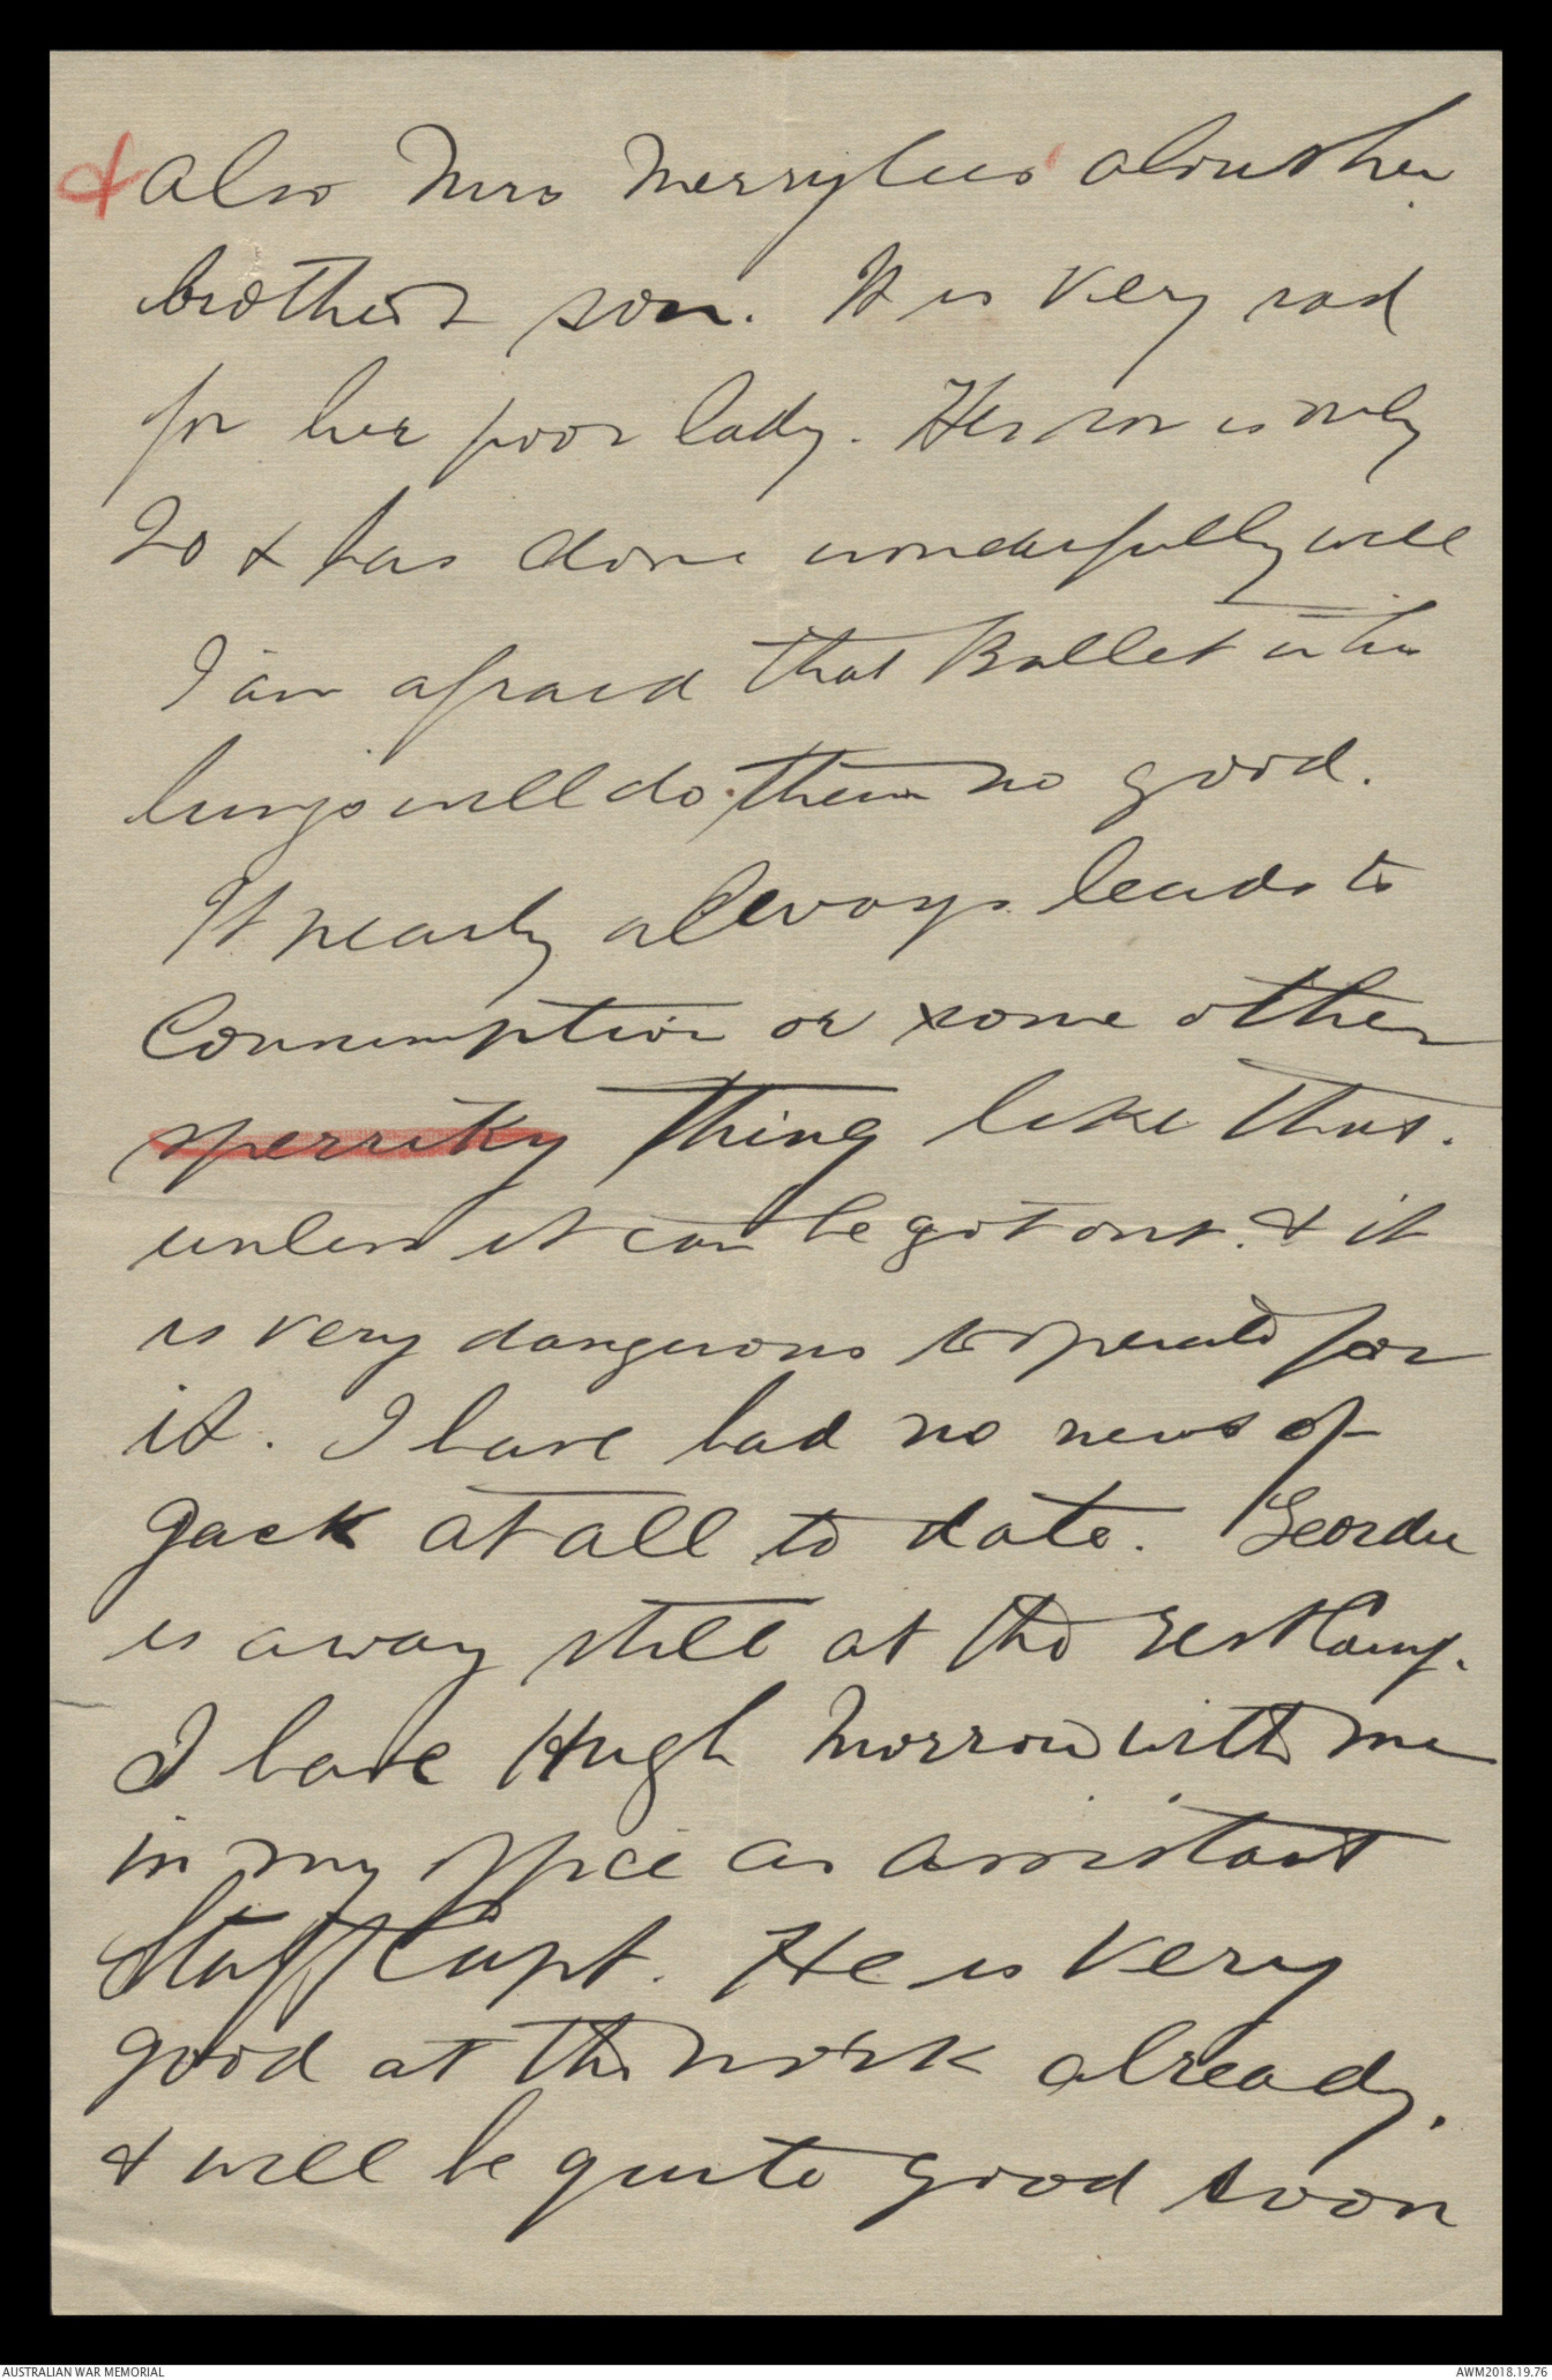 & Also Mrs Merrylees' about her
brother & son. It is very sad
for her poor lady. Her son is only
20 & has done wonderfully well
I am afraid that Bullet in his
lungs will do them no good.
It nearly allways leads to
Consumption or some other
sperriky thing like that.
unless it can be got out. & it
is very dangerous to operate for
it. I have had no news of
Jack at all to date. Geordie
is away still at the rest Camp.
I have Hugh Morrow with me
in my office as assistant
Staff Capt. He is very
good at the work already.
& will be quite good soon
AUSTRALIAN WAR MEMORIAL
AWM2018.19.76